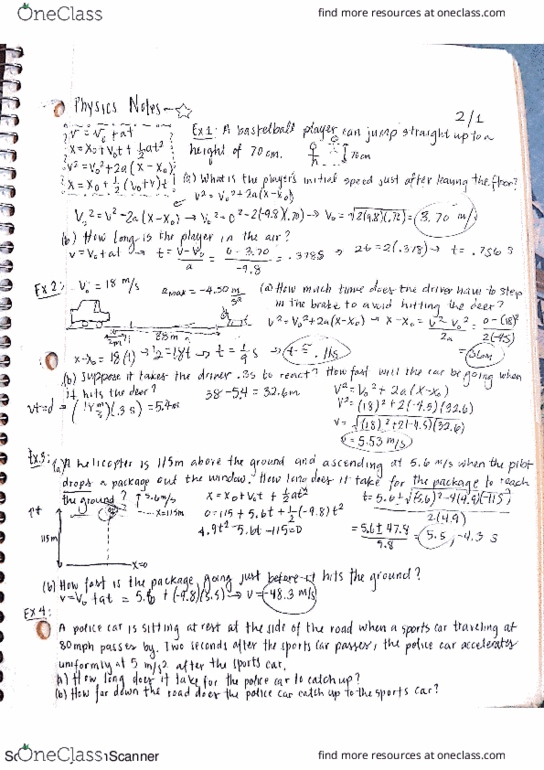 OneClass
find more resources at oneclass.com
Physics Notes
2/1
v = v₀ + at
x = x₀ + v₀t + ½at²
v² = v₀² + 2a(x - x₀)
x = x₀ + ½(v₀+v)t
Ex 1: A basketball player can jump straight up to a
height of 70 cm.
70cm
(a) What is the player's initial speed just after leaving the floor?
v² = v₀² + 2a(x-x₀)
V₀² = v² - 2a(x-x₀) → V₀² = 0² - 2(-9.8)(.70) → V₀ = 3.70 m/s
(b) How long is the player in the air?
v = v₀ + at → t = v-v₀/a = 0-3.70/-9.8 = .378s → 2t = 2(.378) → t = .756s
Ex 2: V₀ = 18 m/s
a max = -4.50 m/s²
38m
(a) How much time does the driver have to step
in the brake to avoid hitting the deer?
v² = v₀² + 2a(x-x₀) → x-x₀ = v²-v₀²/2a = 0-(18)²/2(-4.5)
= 36m
x-x₀ = 18(t) → 2 = 18t → t = 1/9 s → .11s
(b) Suppose it takes the driver .3s to react? How fast will the car be going when
it hits the deer?
38-5.4 = 32.6m
vt=d → (18 m/s)(.3s) = 5.4m
v² = v₀² + 2a(x-x₀)
v² = (18)² + 2(-4.5)(32.6)
v = √(18)² + 2(-4.5)(32.6)
v = 5.53 m/s
Ex 3:
(a) A helicopter is 115m above the ground and ascending at 5.6 m/s when the pilot
drops a package out the window. How long does it take for the package to reach
the ground?
5.6m/s
x=115m
115m
x=0
x = x₀ + v₀t + ½at²
0 = 115 + 5.6t + ½(-9.8)t²
4.9t² - 5.6t - 115 = 0
t = 5.6 ± √(5.6)² - 4(4.9)(-115)
2(4.9)
= 5.6 ± 47.8/9.8 = 5.5, -4.3 s
(b) How fast is the package going just before it hits the ground?
v = v₀ + at = 5.6 + (-9.8)(5.5) → v = -48.3 m/s
Ex 4:
A police car is sitting at rest at the side of the road when a sports car traveling at
80mph passes by. Two seconds after the sports car passes, the police car accelerates
uniformly at 5 m/s² after the sports car.
(a) How long does it take for the police car to catch up?
(b) How far down the road does the police car catch up to the sports car?
Scanner
OneClass
find more resources at oneclass.com